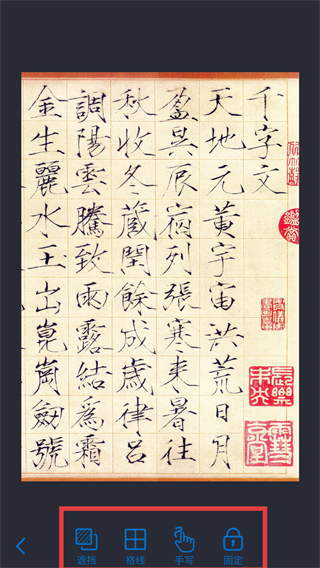 千字文
天地元黃宇宙洪荒日月
盈昃辰宿列張寒来暑往
秋收冬蔵閏餘成歲律呂
調陽雲騰致雨露結為霜
金生麗水玉出崑崗劒號
遮挡
格线
手写
固定